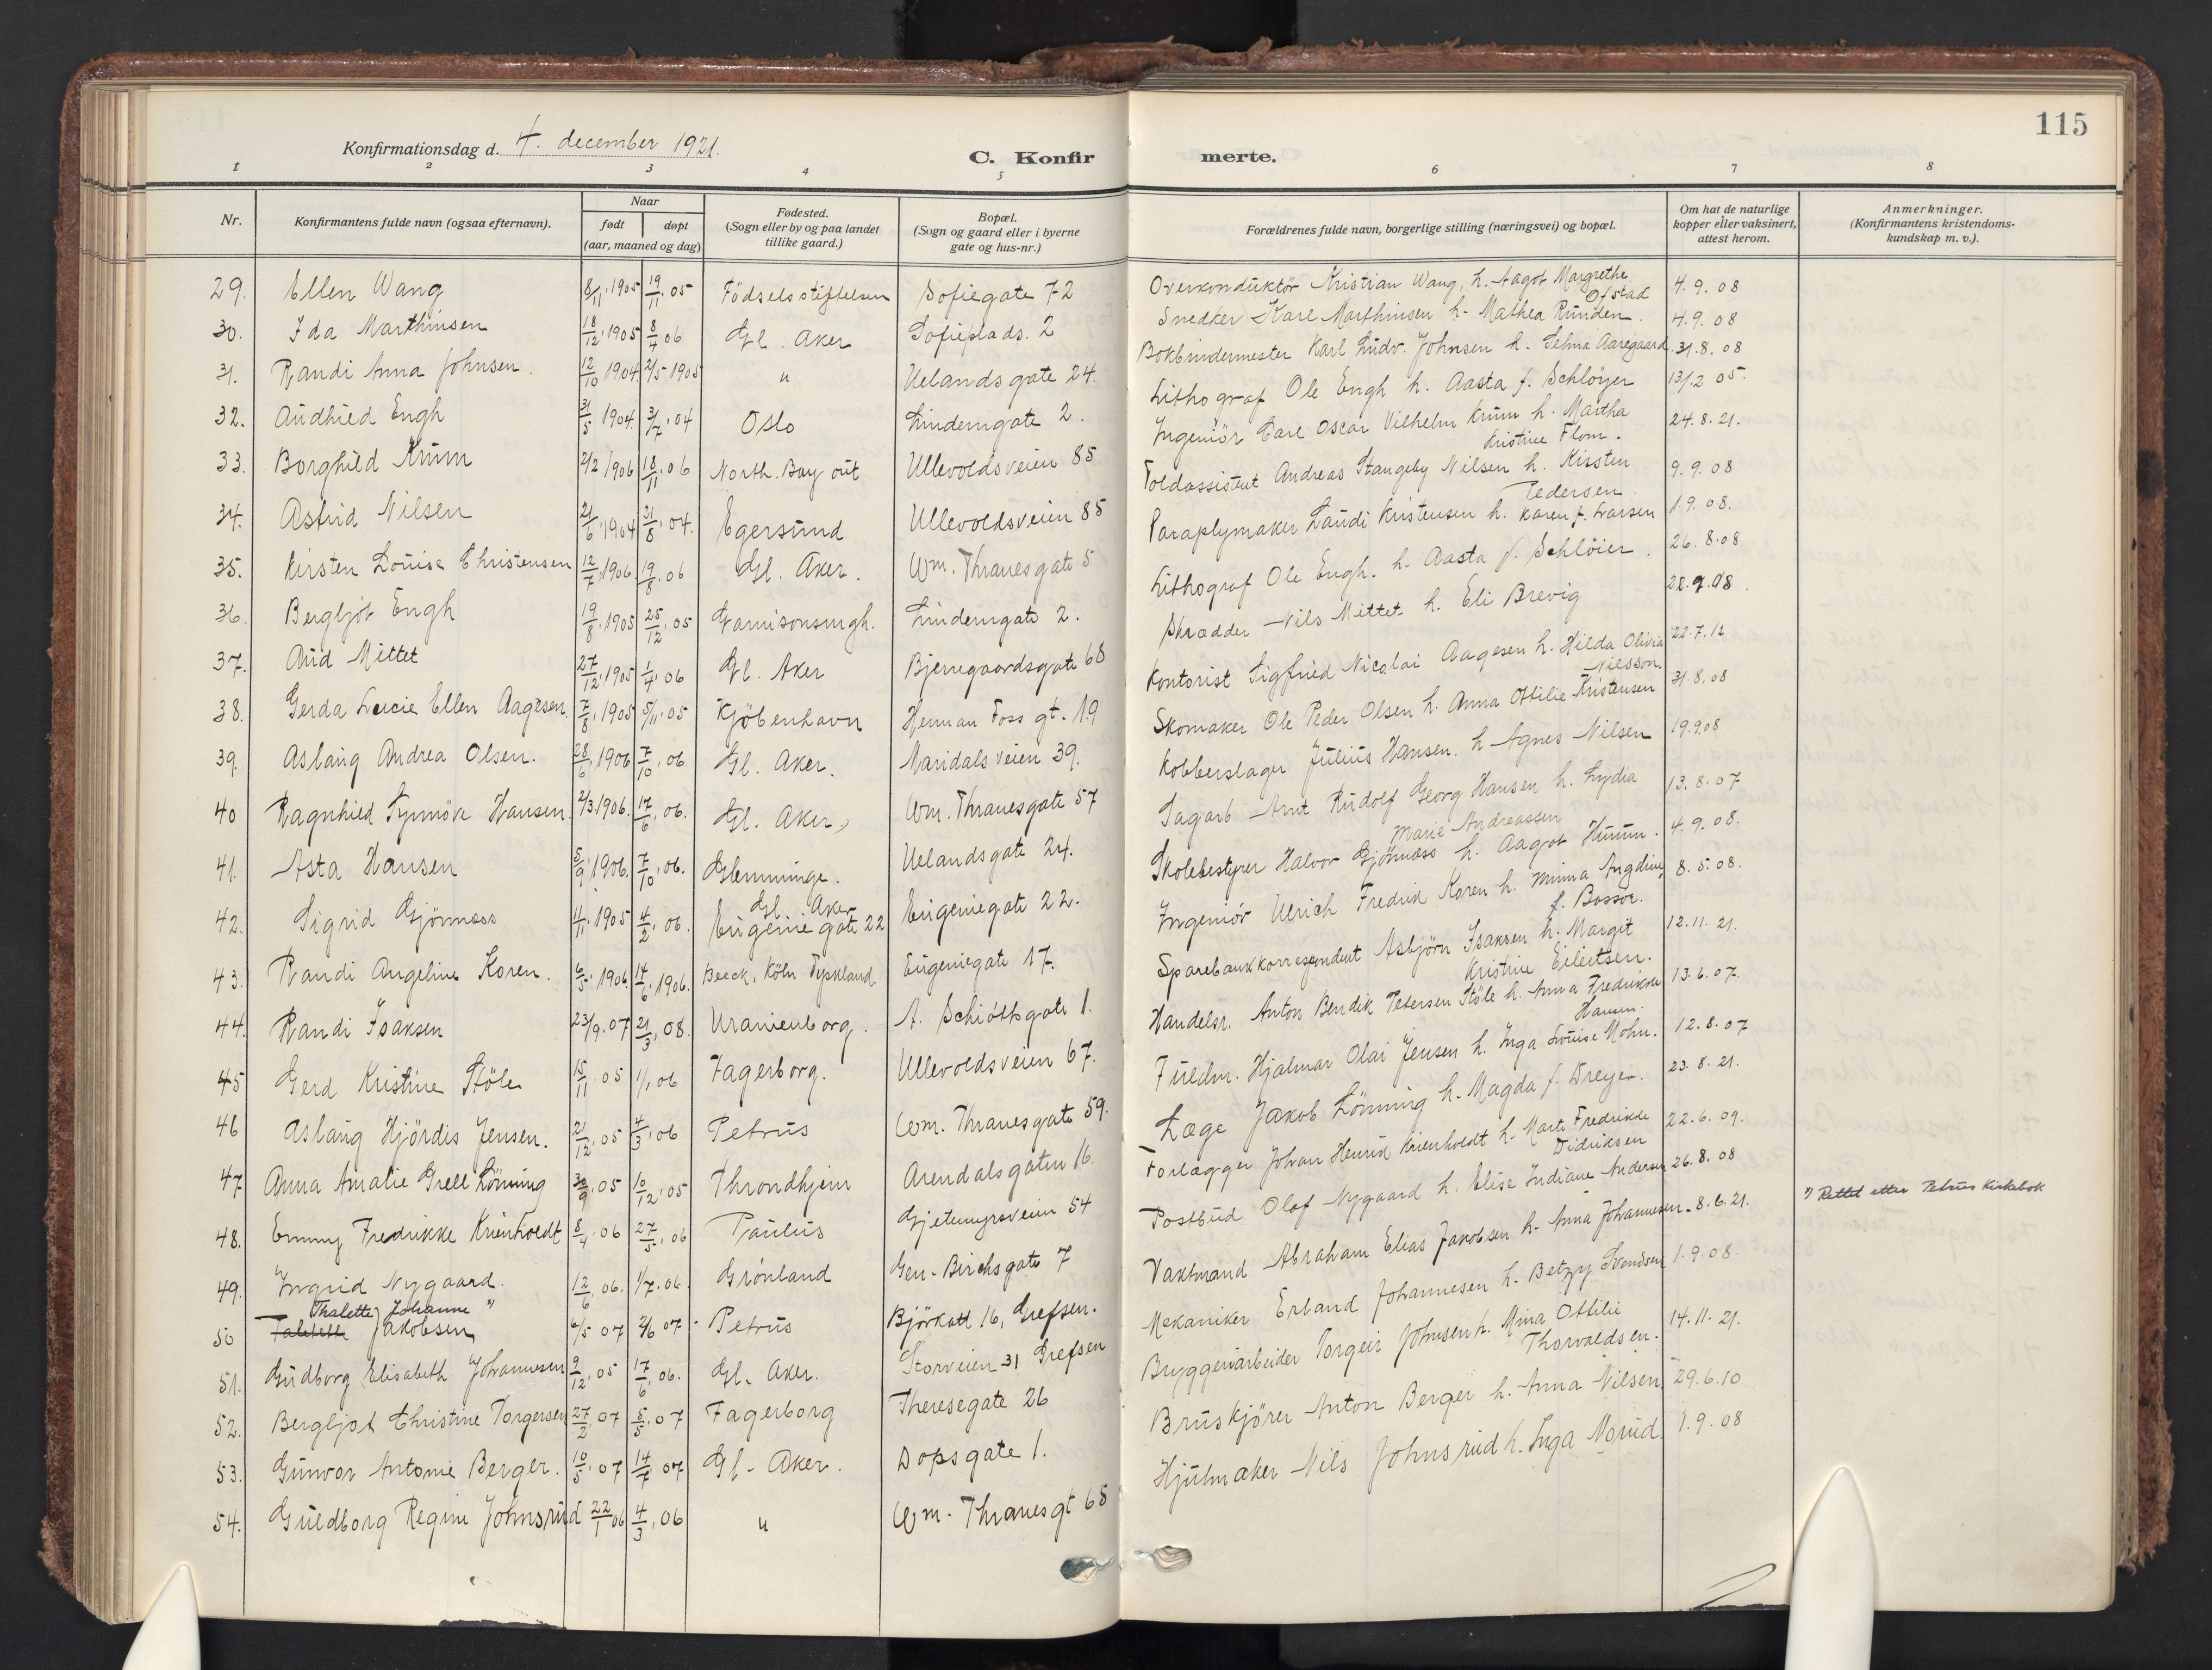 115
Konfirmationsdag d. 4. december 1921.
C. Konfir merte.
1 2 3 4 5 6 7 8
Nr. Konfirmantens fulde navn (ogsaa efternavn). Naar født døpt (aar, maaned og dag) Fødested. (Sogn eller by og paa landet tillike gaard.) Bopæl. (Sogn og gaard eller i byerne gate og hus-nr.) Forældrenes fulde navn, borgerlige stilling (næringsvei) og bopæl. Om hat de naturlige kopper eller vaksinert, attest herom. Anmerkninger. (Konfirmantens kristendomskundskap m. v.).
29. Ellen Wang 8/11. 1905 19/11. 05 Födselsstiftelsen Sofiegate 72 Overkonduktör Kristian Wang, h. Aagot Margrethe Ofstad 4. 9. 08
30. Ida Marthinsen 18/12. 1905 8/4 06 Gl. Aker Sofieplads. 2 Snedker Karl Marthinsen h. Mathea Runden. 4. 9. 08
31. Randi Anna Johnsen. 12/10 1904 2/5 1905 " Uelandsgate 24. Bokbindermester Karl Ludv. Johnsen h. Selma Aaregaard. 31. 8. 08
32. Audhild Engh 31/5 1904. 3/7. 04 Oslo Lindemgate 2. Lithograf Ole Engh h. Aasta f. Schlöyer 13/12 05.
33. Borghild Krum 2/2 1906 18/11. 06 North. Bay out Ullevoldsveien 85 Ingeniör Carl Oscar Vilhelm Krum h. Martha Kristine Flom. 24. 8. 21.
34. Astrid Nilsen 21/6. 1904 31/8. 04. Egersund Ullevoldsveien 85 Toldassistent Andreas Stangeby Nilsen h. Kirsten Pedersen 9. 9. 08
35. Kirsten Louise Christensen 12/7. 1906 19/8. 06 Gl. Aker. Wm. Thranesgate 5 Paraplymaker Laudi Kristensen h. Karen f. Larsen 1. 9. 08.
36. Bergljot Engh 19/8. 1905 25/12. 05 Garnisonsmgh. Lindemgate 2. Lithograf Ole Engh. h. Aasta f. Schlöier. 26. 8. 08
37. Aud Mittet 27/12. 1905 1/4. 06 Gl. Aker Bjerregaardsgate 68 Skrædder Nils Mittet h. Eli Brevig 28. 9. 08.
38. Gerda Lucie Ellen Aagesen. 7/8. 1905 5/11. 05 Kjöbenhavn Herman Foss gt. 19 Kontorist Sigfried Nicolai Aagesen h. Hilda Olivia Nilsson. 22. 7. 12
39. Aslaug Andrea Olsen. 28/6. 1906 7/10. 06 Gl. Aker. Maridalsveien 39. Skomaker Ole Peder Olsen h. Anna Ottilie Kristensen 31. 8. 08
40 Ragnhild Synnöve Hansen. 2/3. 1906. 17/6. 06. Gl. Aker, Wm. Thranesgate 57 Kobberslager Julius Hansen. h. Agnes Nilsen 19. 9. 08
41. Asta Hansen 5/9. 1906. 7/10. 06. Glemminge. Uelandsgate 24. Sagarb Arnt Rudolf Georg Hansen h. Lydia Marie Andreassen 13. 8. 07
42. Sigrid Gjönnæss 4/11. 1905 4/2. 06. Gl. Aker Eugenie gate 22 Eugeniegate 22. Skolebestyrer Halvor Gjönnæss h. Aagot Humm. 4. 9. 08.
43. Randi Angeline Koren. 6/5. 1906. 14/6. 1906. Beeck, Köln Tyskland Eugeniegate 17. Ingeniör Ulrich Fredrik Koren h. Minna Angeline f. Bassoe. 8. 5. 08.
44. Randi Isaksen 23/9. 07 21/3. 08. Uranienborg. A. Schiöttsgate 1. Sparebankkorrespondent Asbjörn Isaksen h. Margit Kristine Eilertsen. 12. 11. 21.
45 Gerd Kristine Stöle 15/11. 05 1/1. 06 Fagerborg. Ullevoldsveien 67. Handelsr. Anton Bendik Petersen Stöle h. Anna Fredrikke Hansen. 13. 6. 07.
46 Aslaug Hjördis Jensen. 21/12. 05 4/3. 06 Petrus Wm. Thranesgate 59. Fuldm. Hjalmar Olai Jensen h. Inga Louise Mohn. 12. 8. 07
47 Anna Amalie Grell Lönning 30/9. 05 10/12. 05 Throndhjem Arendalsgaten 16. Læge Jakob Lönning h. Magda f. Dreyer. 23. 8. 21.
48. Emmy Fredrikke Krienholdt 8/4. 06 27/5. 06 Paulus Gjetemyrsveien 54 Forlægger Johan Henrik Krienholdt h. Marta Fredrikke Didriksen 22. 6. 09.
49. Ingrid Nygaard. 12/6. 06. 1/7. 06. Grönland Gen. Birchsgate 7 Postbud Olaf Nygaard h. Elise Indiane Andersen 26. 8. 08
50 Thalette Johanne ") Jakobsen 6/5 07 2/6 07 Petrus Björkatt 16, Grefsen. Vaktmand Abraham Elias Jakobsen h. Anna Johannesen. 8. 6. 21. ") Rettet etter Petrus kirkebok
51. Gudborg Elisabeth Johannesen 9/12. 05 17/6. 06. Gl. Aker. Storveien 31 Grefsen Mekaniker Erland Johannesen h. Betzy Svendsen 1. 9. 08.
52. Bergljot Christine Torgersen 27/2. 07 5/5. 07 Fagerborg Theresegate 26 Bryggeriarbeider Torgeir Johnsen h. Mina Ottilie Thorvaldsen. 14. 11. 21.
53. Gunvor Antonie Berger. 10/5. 07 14/7 07 Gl. Aker. Dopsgate 1. Bruskjörer Anton Berger h. Anna Nilsen 29. 6. 10
54. Guldborg Regine Johnsrud 22/1 06 4/3. 06 " Wm. Thranesgt 68 Hjulmaker Nils Johnsrud h. Inga Norud. 1. 9. 08